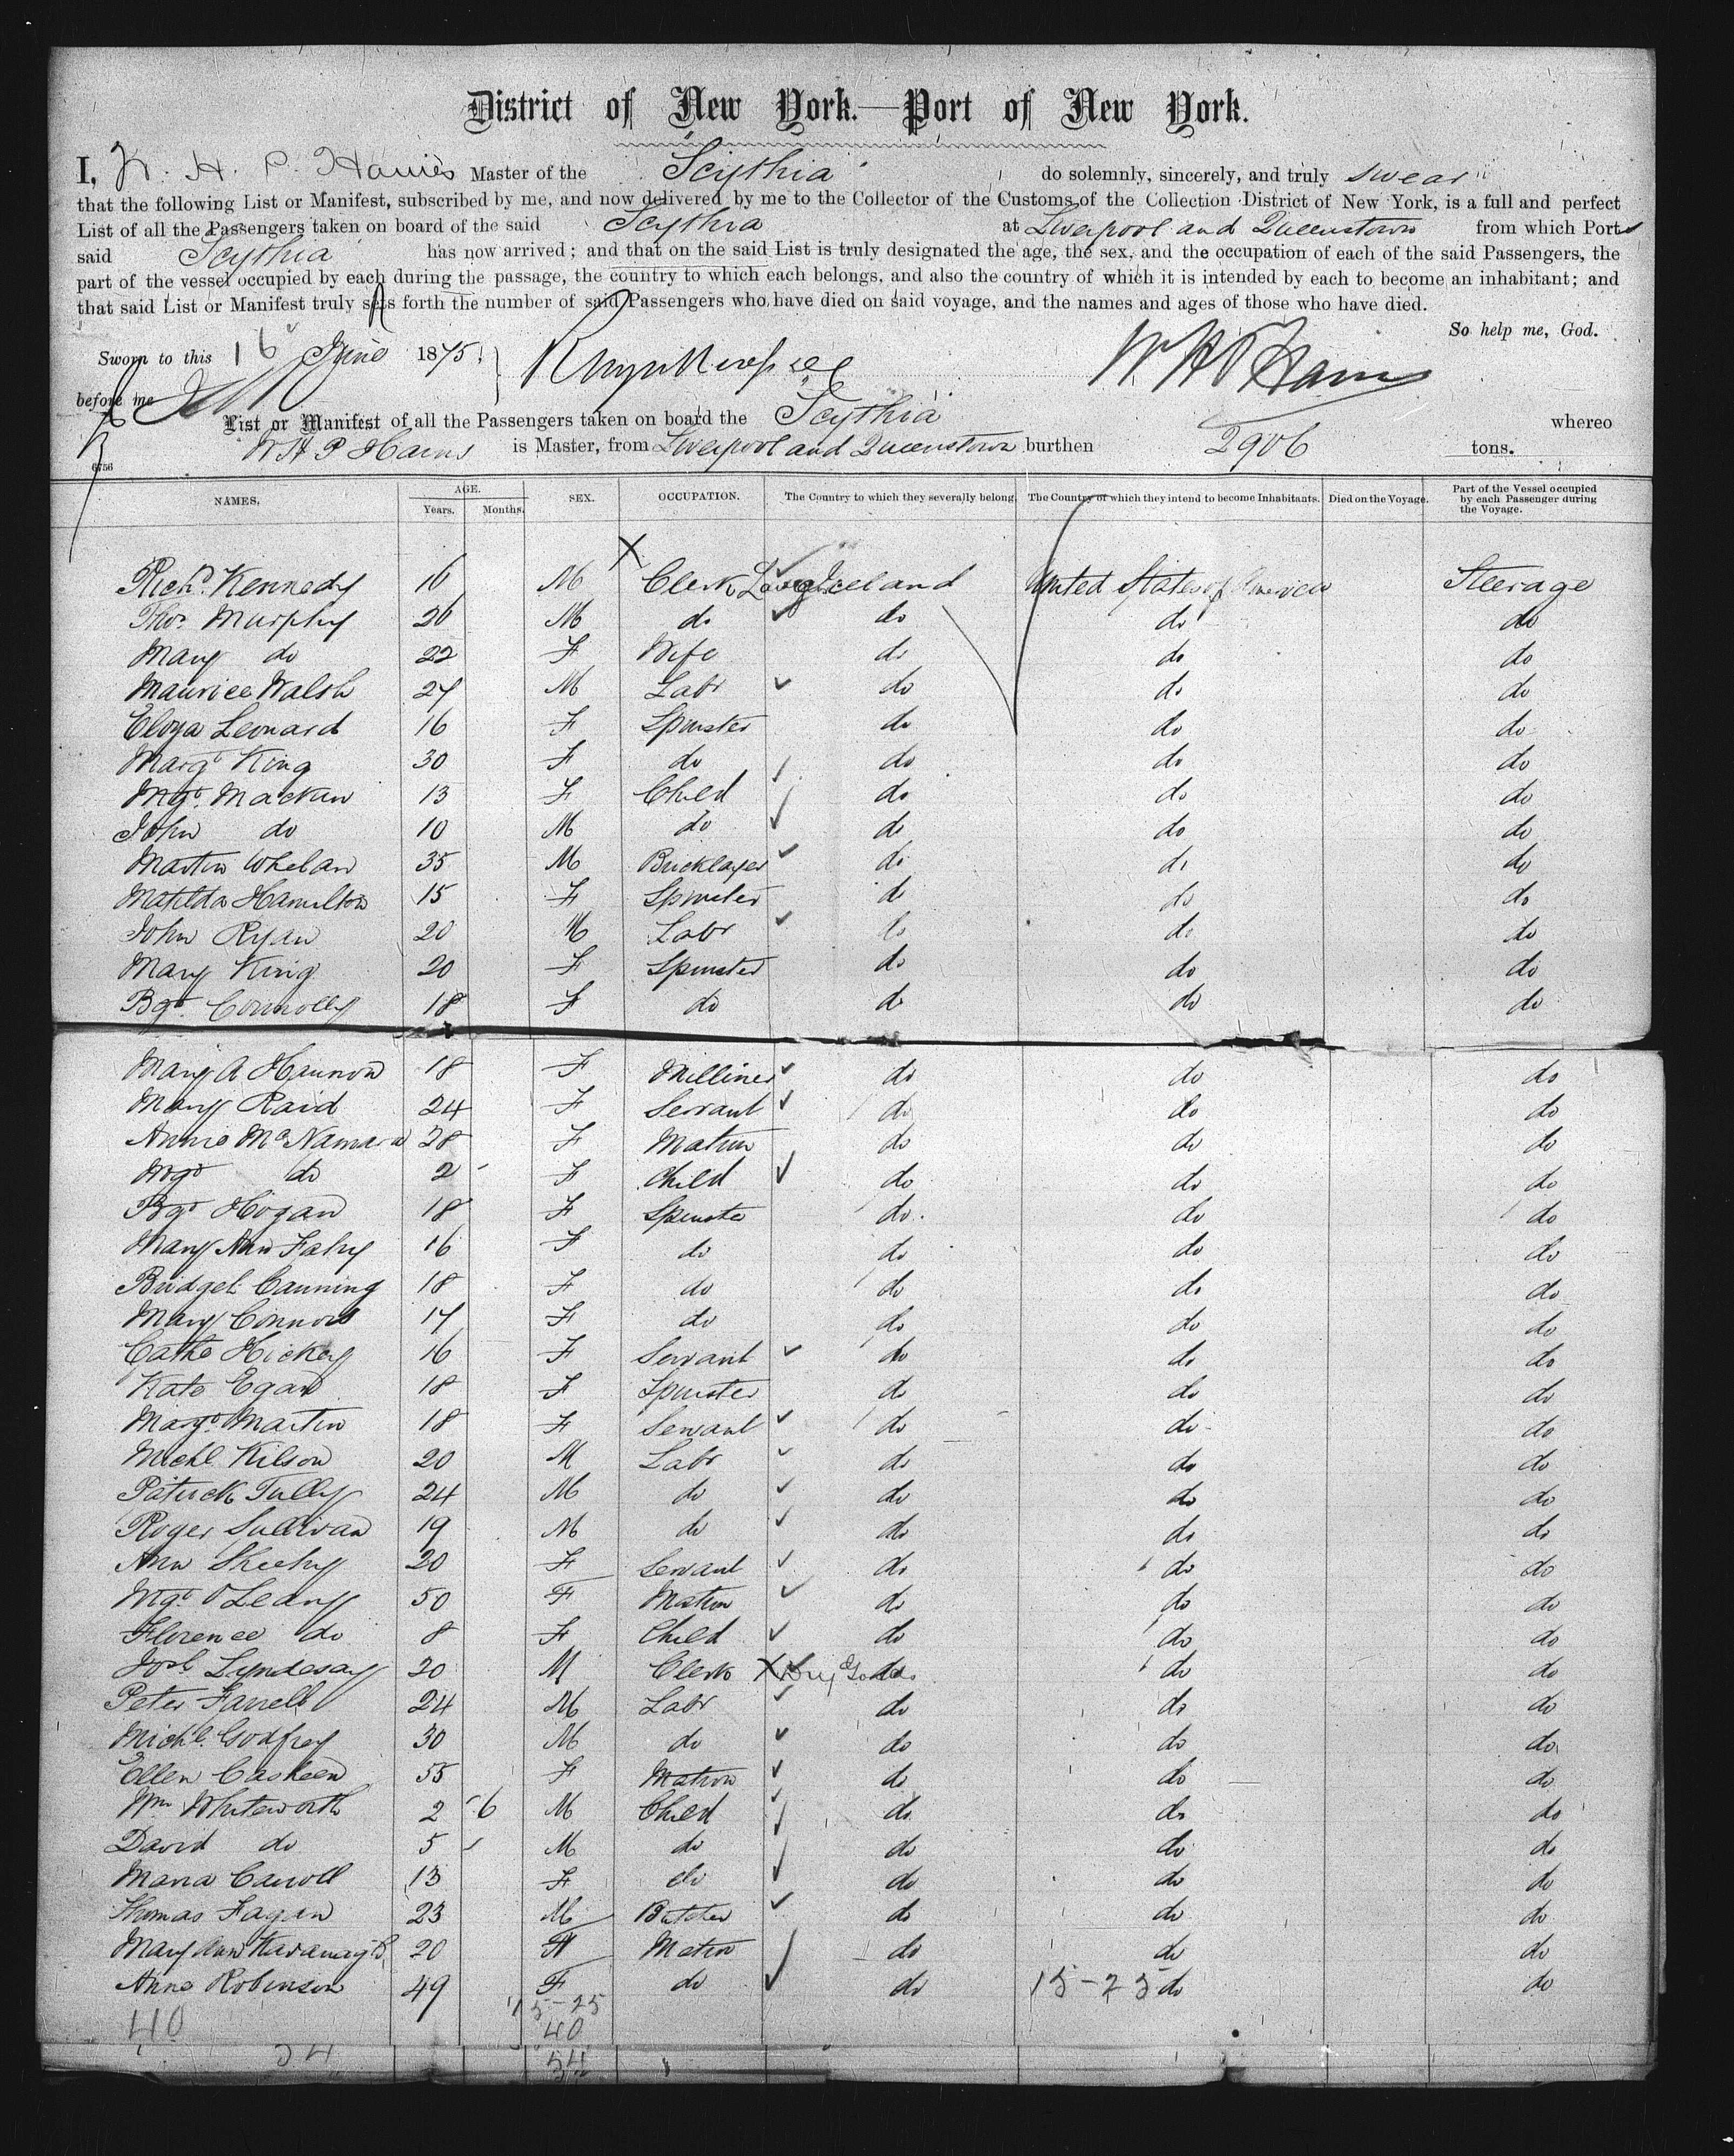 District of New York.—Port of New York.
I, W. H. P. Hains Master of the "Scythia" do solemnly, sincerely, and truly swear
that the following List or Manifest, subscribed by me, and now delivered by me to the Collector of the Customs of the Collection District of New York, is a full and perfect
List of all the Passengers taken on board of the said Scythia at Liverpool and Queenstown from which Ports
said Scythia has now arrived; and that on the said List is truly designated the age, the sex, and the occupation of each of the said Passengers, the
part of the vessel occupied by each during the passage, the country to which each belongs, and also the country of which it is intended by each to become an inhabitant; and
that said List or Manifest truly sets forth the number of said Passengers who have died on said voyage, and the names and ages of those who have died.
So help me, God.
Sworn to this 16 June 1875, W H P Hains
before me
List or Manifest of all the Passengers taken on board the "Scythia" whereo
W H P Hains is Master, from Liverpool and Queenstown burthen 2906 tons.
6756
NAMES. AGE. Years. Months. SEX. OCCUPATION. The Country to which they severally belong. The Country of which they intend to become Inhabitants. Died on the Voyage. Part of the Vessel occupied by each Passenger during the Voyage.
Richd. Kennedy 16 M Clerk Ireland United States of America Steerage
Thos. Murphy 26 M do do do do
Mary do 22 F Wife do do do
Maurice Walsh 24 M Labr do do do
Eloya Leonard 16 F Spinster do do do
Margt King 30 F do do do do
Mgt. Mackin 13 F Child do do do
John do 10 M do do do do
Martin Whelan 35 M Bricklayer do do do
Matilda Hamilton 15 F Spinster do do do
John Ryan 20 M Labr do do do
Mary King 20 F Spinster do do do
Bgt. Connolly 18 F do do do do
Mary A Hannon 18 F Milliner do do do
Mary Raid 24 F Servant do do do
Annie McNamara 28 F Matron do do do
Mgt do 2 F Child do do do
Bgt Hogan 18 F Spinster do do do
Mary Ann Fahy 16 F do do do do
Bridget Canning 18 F do do do do
Mary Connors 17 F do do do do
Cathe Hickey 16 F Servant do do do
Kate Egan 18 F Spinster do do do
Margt. Martin 18 F Servant do do do
Michl Kilson 20 M Labr do do do
Patrick Tully 24 M do do do do
Roger Sullivan 19 M do do do do
Ann Sheehy 20 F Servant do do do
Mgt. O'Leary 50 F Matron do do do
Florence do 8 F Child do do do
Josh Lyndesay 20 M Clerk X Dry Goods do do do
Peter Farrell 24 M Labr do do do
Michl. Godfrey 30 M do do do do
Ellen Casheen 55 F Matron do do do
Wm Whiteworth 2 6 M Child do do do
David do 5 M do do do do
Maria Carroll 13 F do do do do
Thomas Fagan 23 M Butcher do do do
Mary Ann Kavanagh 20 F Matron do do do
Anne Robinson 49 F do do 15-25 do do
40 15-25
40
34 34